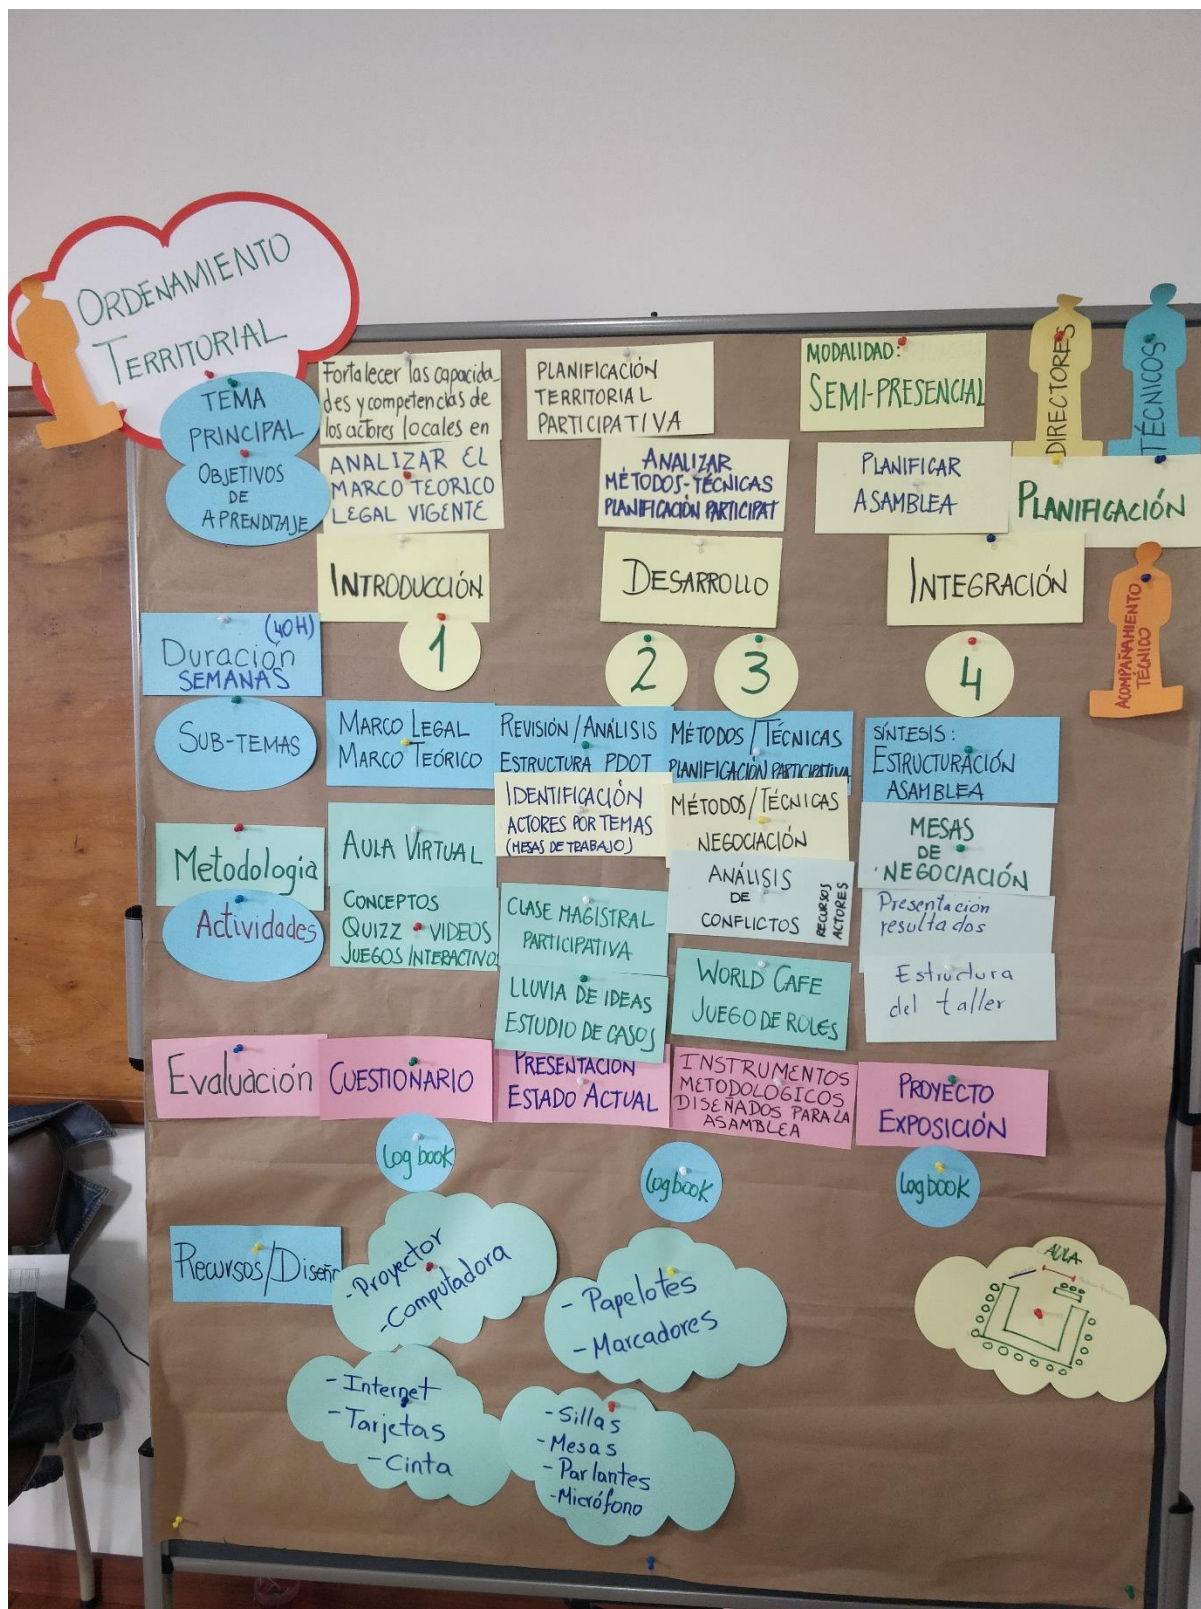 ORDENAMIENTO
TERRITORIAL
TEMA
PRINCIPAL
Fortalecer las capacida_
des y competencias de
los actores locales en
PLANIFICACIÓN
TERRITORIAL
PARTICIPATIVA
MODALIDAD:
SEMI-PRESENCIAL
DIRECTORES
TÉCNICOS
OBJETIVOS
DE
APRENDIZAJE
ANALIZAR EL
MARCO TEORICO
LEGAL VIGENTE
ANALIZAR
MÉTODOS-TÉCNICAS
PLANIFICACIÓN PARTICIPAT
PLANIFICAR
ASAMBLEA
PLANIFICACIÓN
INTRODUCCIÓN
DESARROLLO
INTEGRACIÓN
ACOMPAÑAMIENTO
TÉCNICO
(40H)
Duración
SEMANAS
1
2
3
4
SUB-TEMAS
MARCO LEGAL
MARCO TEÓRICO
REVISIÓN/ANÁLISIS
ESTRUCTURA PDOT
MÉTODOS/TÉCNICAS
PLANIFICACIÓN PARTICIPATIVA
SÍNTESIS:
ESTRUCTURACIÓN
ASAMBLEA
IDENTIFICACIÓN
ACTORES POR TEMAS
(MESAS DE TRABAJO)
MÉTODOS/TÉCNICAS
NEGOCIACIÓN
Metodología
AULA VIRTUAL
ANÁLISIS
DE
CONFLICTOS
RECURSOS
ACTORES
MESAS
DE
NEGOCIACIÓN
Actividades
CONCEPTOS
QUIZZ VIDEOS
JUEGOS INTERACTIVO
CLASE MAGISTRAL
PARTICIPATIVA
LLUVIA DE IDEAS
ESTUDIO DE CASOS
WORLD CAFE
JUEGO DE ROLES
Presentación
resultados
Estructura
del taller
Evaluación
CUESTIONARIO
PRESENTACIÓN
ESTADO ACTUAL
INSTRUMENTOS
METODOLÓGICOS
DISEÑADOS PARA LA
ASAMBLEA
PROYECTO
EXPOSICIÓN
Logbook
Logbook
Logbook
Recursos/Diseño
- Proyector
- Computadora
- Papelotes
- Marcadores
AULA
- Internet
- Tarjetas
- Cinta
- Sillas
- Mesas
- Parlantes
- Micrófono